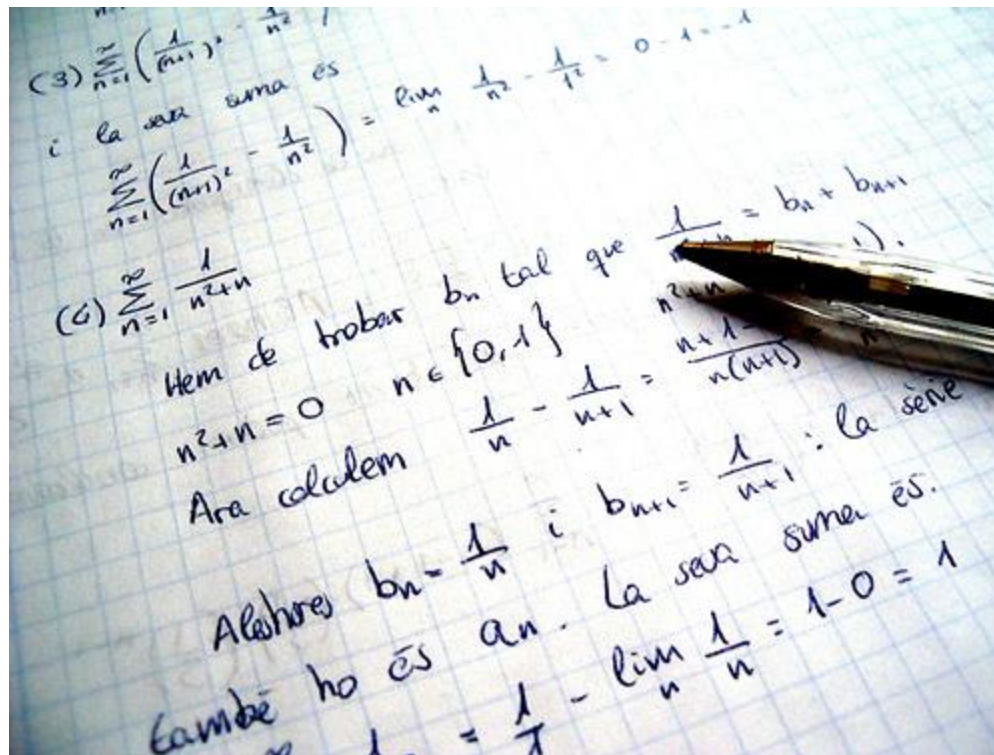 (3) ∑_{n=1}^{∞} (1/(n+1)² - 1/n²)
i la seva suma és
∑_{n=1}^{∞} (1/(n+1)² - 1/n²) = lim_n 1/n² - 1/1² = 0 - 1 = -1
(4) ∑_{n=1}^{∞} 1/(n²+n)
Hem de trobar bn tal que 1/(n²+n) = bn + bn+1
n²+n = 0 n ∈ {0,-1}
Ara calculem 1/n - 1/(n+1) = (n+1-)/(n(n+1))
Aleshores bn = 1/n i bn+1 = 1/(n+1) : la sèrie
també ho és an. La seva suma és.
= 1/1 - lim_n 1/n = 1-0 = 1